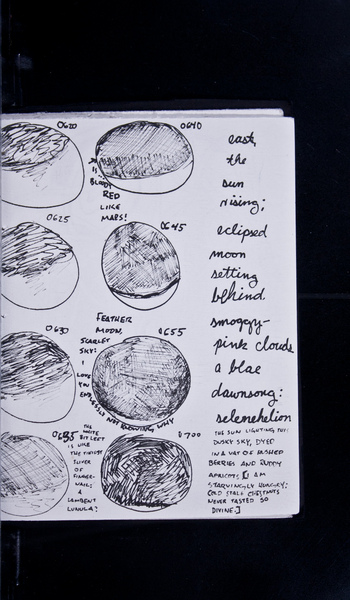 0620
0640
IS
BLOODY
RED
LIKE
MARS!
0625
0645
FEATHER
MOON,
SCARLET
SKY:
0630
0655
LOVE
YOU
ENDLESSLY NOT KNOWING WHY
0635
THE
WHITE
BIT LEFT
IS LIKE
THE TINIEST
SLIVER
OF
FINGER-
NAIL:
A
LAMBENT
LUNULA?
0700
east,
the
sun
rising;
eclipsed
moon
setting
behind.
smoggy-
pink clouds
a blae
dawnsong:
selenehelion
THE SUN LIGHTING THIS
DUSKY SKY, DYED
IN A VAT OF MASHED
BERRIES AND RUDDY
APRICOTS; I AM
STARVINGLY HUNGRY:
COLD STALE CHESTNUTS
NEVER TASTED SO
DIVINE.]